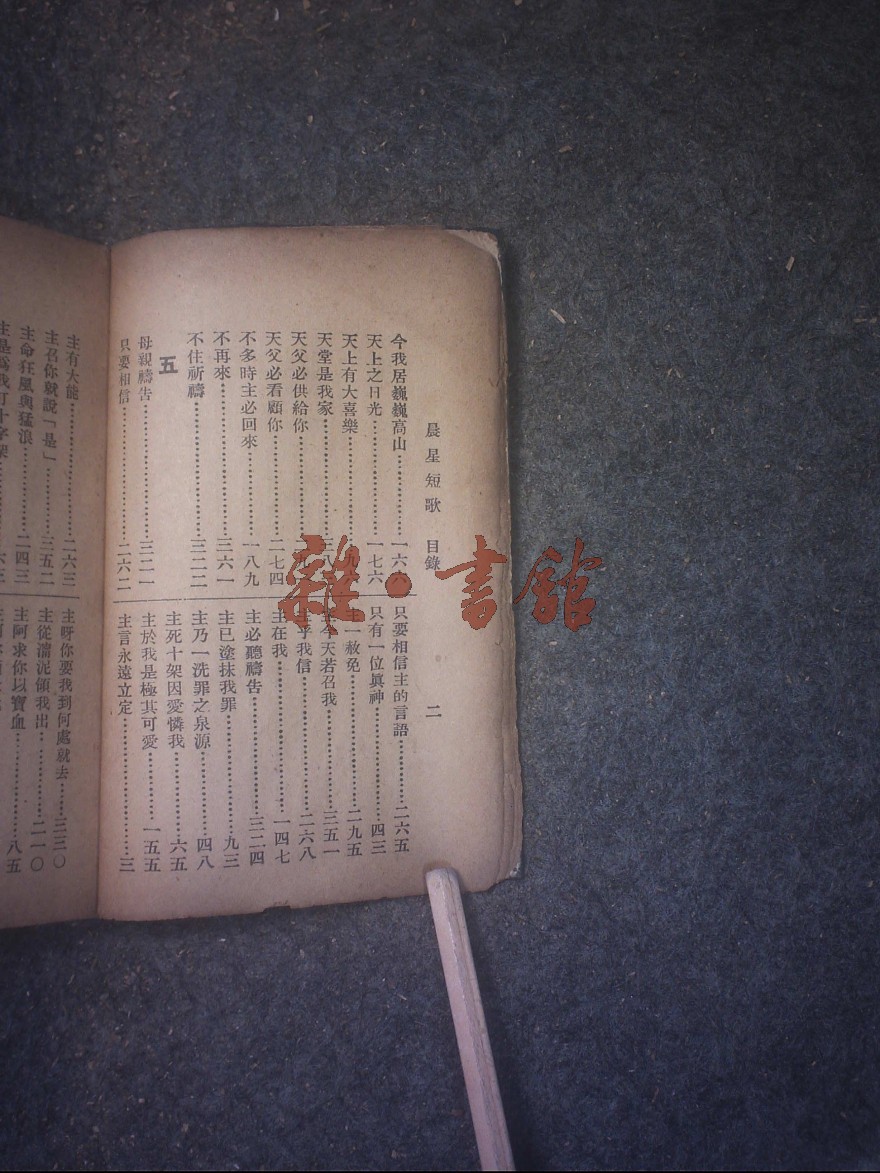 晨星短歌 目錄 二
今我居巍巍高山……一六六
天上之日光……一七六
天上有大喜樂……
天堂是我家……
天父必供給你……
天父必看顧你……二七四
不多時主必回來……一八九
不再來……三六一
不住祈禱……三二二
五
母親禱告……三二一
只要相信……二六二
只要相信主的言語……二六五
只有一位眞神……四三
一赦免……二九五
今天若召我……三五一
乎我信……二六八
主在我……一四七
主必聽禱告……三二四
主已塗抹我罪……九三
主乃一洗罪之泉源……四八
主死十架因愛憐我……六五
主於我是極其可愛……一五五
主言永遠立定……三
主有大能……二六三
主召你就說「是」……三五二
主命狂風與猛浪……二四三
主是爲我釘十字架
主呀你要我到何處就去……三三〇
主從濘泥領我出……二一〇
主阿求你以寶血……八五
雜·書館